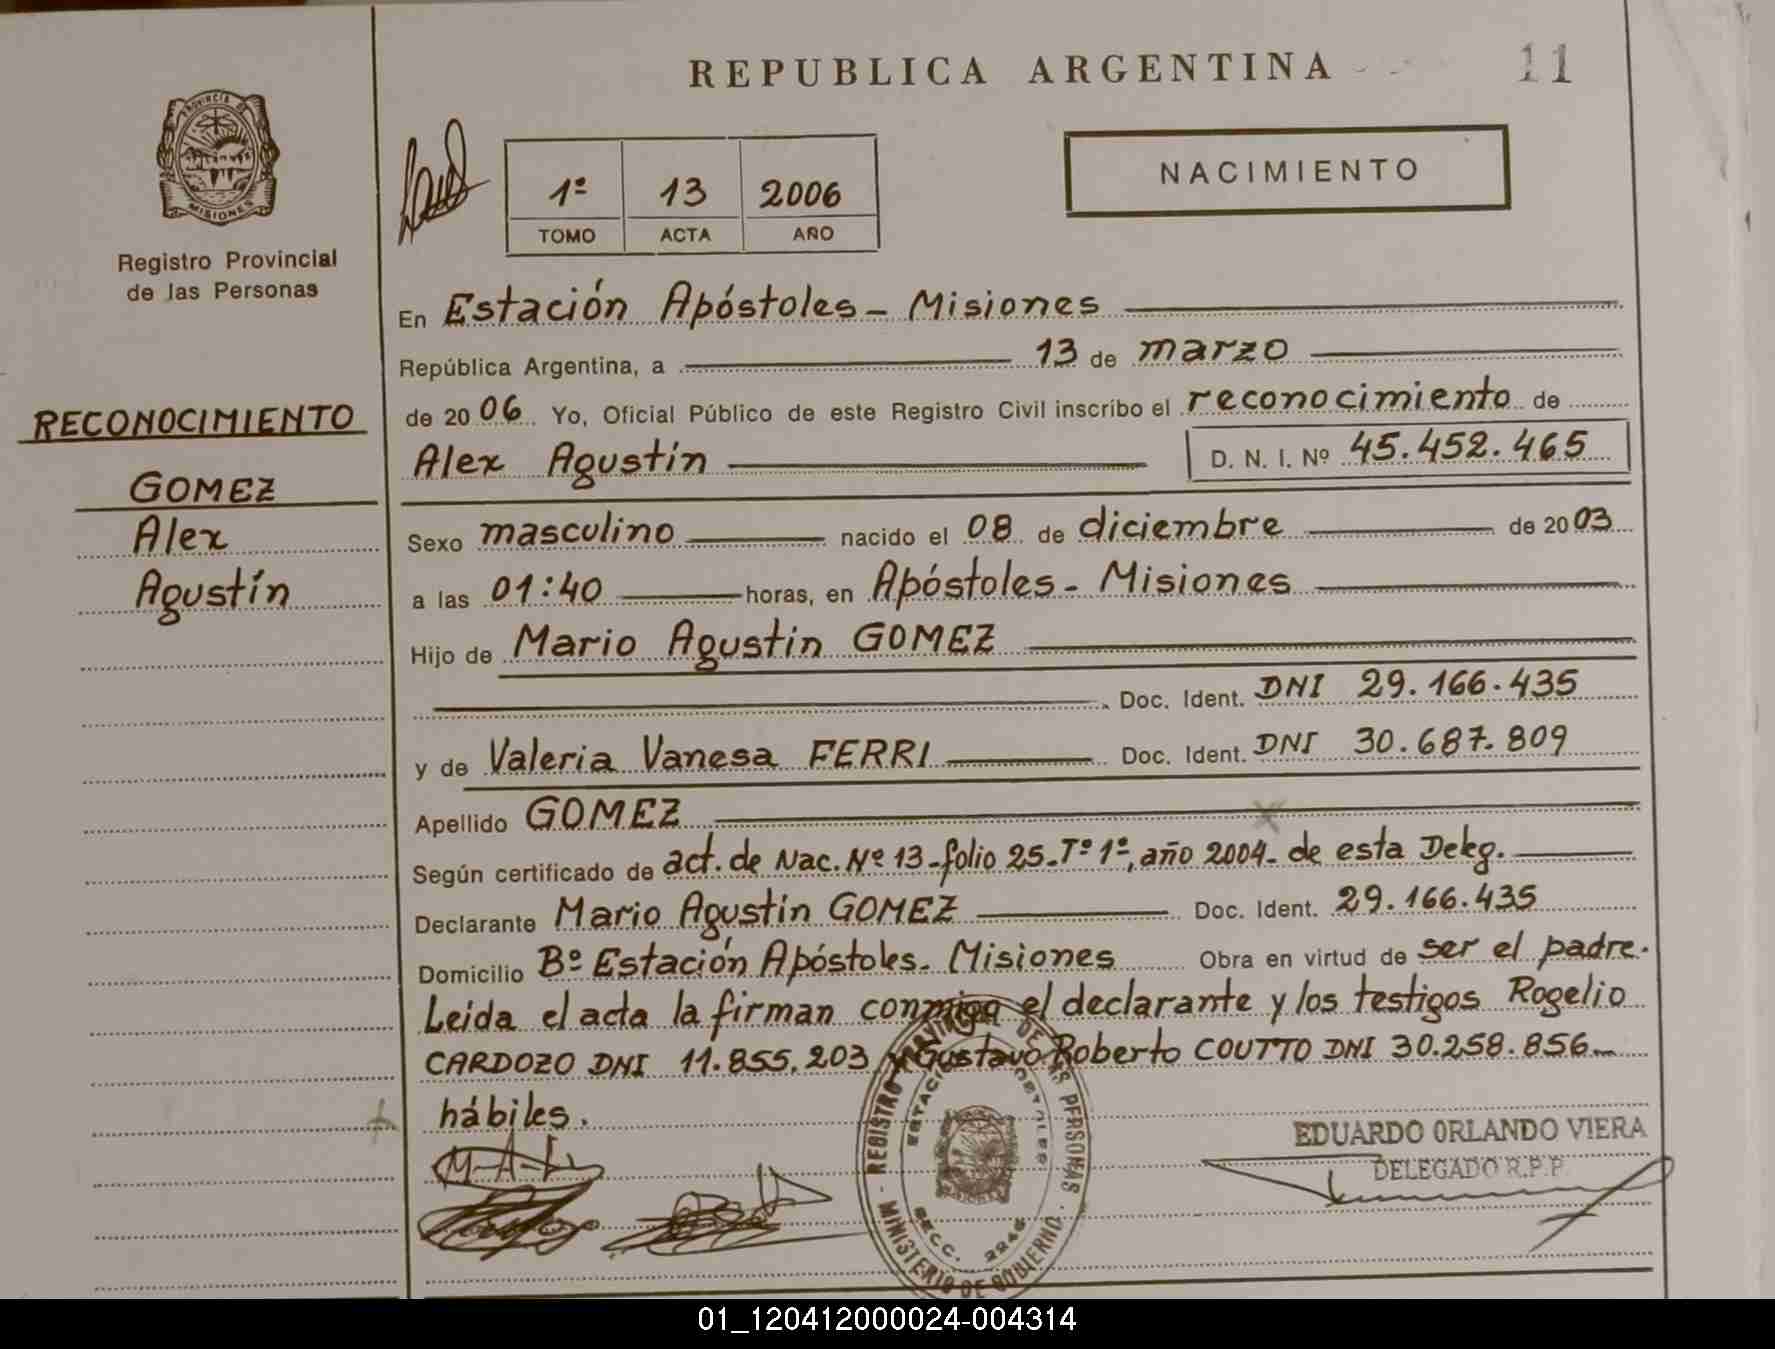 REPUBLICA ARGENTINA
11
PROVINCIA DE
MISIONES
Registro Provincial
de las Personas
1º 13 2006
TOMO ACTA AÑO
NACIMIENTO
RECONOCIMIENTO
GOMEZ
Alex
Agustín
En Estación Apóstoles - Misiones
República Argentina, a 13 de marzo
de 2006 Yo, Oficial Público de este Registro Civil inscribo el reconocimiento de
Alex Agustín D. N. I. Nº 45.452.465
Sexo masculino nacido el 08 de diciembre de 2003
a las 01:40 horas, en Apóstoles - Misiones
Hijo de Mario Agustin GOMEZ
Doc. Ident. DNI 29.166.435
y de Valeria Vanesa FERRI Doc. Ident. DNI 30.687.809
Apellido GOMEZ
Según certificado de act. de Nac. Nº 13 - folio 25 - Tº 1º, año 2004 - de esta Deleg.
Declarante Mario Agustin GOMEZ Doc. Ident. 29.166.435
Domicilio Bº Estación Apóstoles - Misiones Obra en virtud de ser el padre.
Leída el acta la firman conmigo el declarante y los testigos Rogelio
CARDOZO DNI 11.855.203 y Gustavo Roberto COUTTO DNI 30.258.856
hábiles.
REGISTRO PROVINCIAL DE LAS PERSONAS
MINISTERIO DE GOBIERNO
ESTACION APOSTOLES
SECC. 2246
EDUARDO ORLANDO VIERA
DELEGADO R.P.P.
01_120412000024-004314